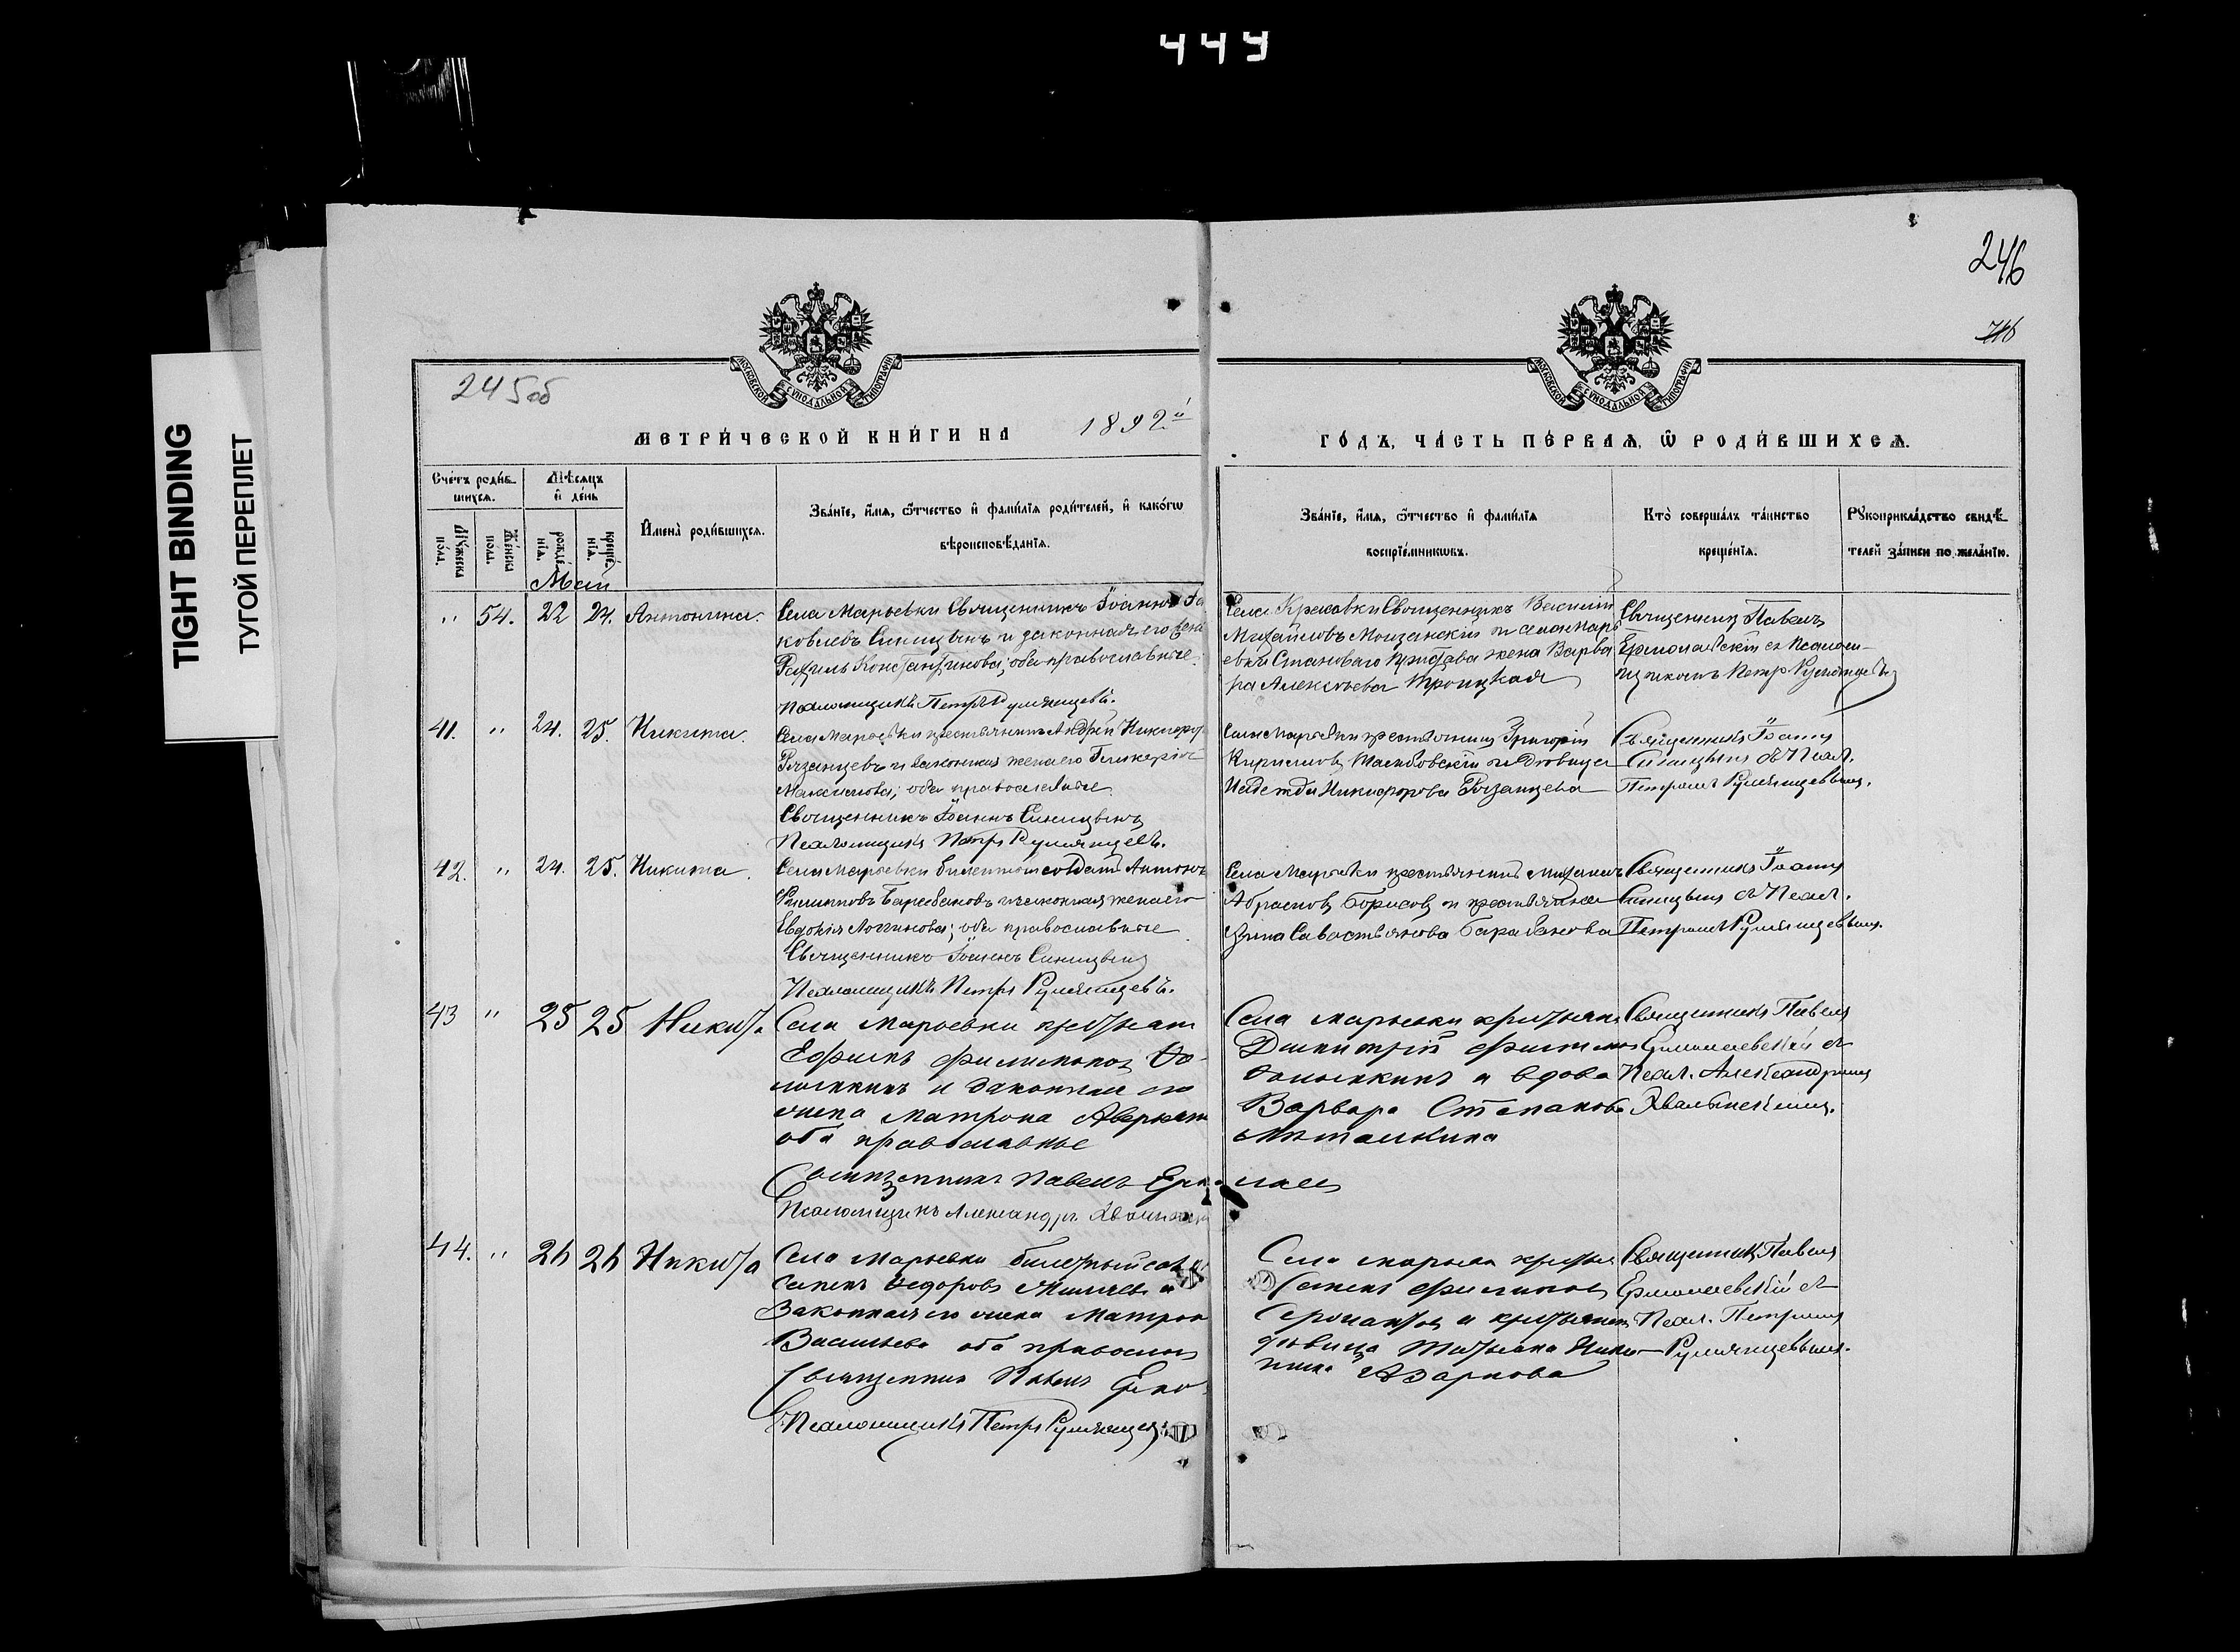 449
TIGHT BINDING
ТУГОЙ ПЕРЕПЛЕТ
246
245об
МОСКОВСКОЙ СУНОДАЛЬНОЙ ТИПОГРАФІИ
МОСКОВСКОЙ СУНОДАЛЬНОЙ ТИПОГРАФІИ
МЕТРИ́ЧЕСКОЙ КНИ́ГИ НА 1892й
ГО́ДЪ, ЧА́СТЬ ПЕ́РВАѦ, Ѿ РОДИ́ВШИХСѦ.
Сче́тъ роди́в-
шихсѧ.
Мѣ́сѧцъ
и҆ де́нь
Му́жеска
по́ла.
Же́нска
по́ла.
рожде́-
нїѧ.
креще́-
нїѧ.
И҆мена̀ роди́вшихсѧ.
Зва́нїе, и҆́мѧ, ѻ҆́тчество и҆ фами́лїѧ роди́телей, и҆ како́гѡ
вѣроисповѣ́данїѧ.
Зва́нїе, и҆́мѧ, ѻ҆́тчество и҆ фами́лїѧ
воспрїе́мникѡвъ.
Кто̀ соверша́лъ та́инство
креще́нїѧ.
Рꙋкоприкла́дство свидѣ́-
телей за́писи по жела́нїю.
Май
" 54. 22 24. Антонина.
Села Марьевки Священникъ Іоаннъ Іа
ковлевъ Синицынъ и законная его жена
Рахиль Константинова; оба православные.
Псаломщикъ Петръ Румянцевъ.
Села Священникъ Василій
Михайловъ и села Марь
евки Становаго Пристава жена Варва
ра Алексѣева Троицкая
Священникъ Павелъ
Ермолаевскій съ Псалом-
щикомъ Петр. Румянцевымъ
41. " 24. 25. Никита.
Села Марьевки крестьянинъ Андрей Никифоровъ
Рязанцевъ и законная жена его Гликерія
Максимова; оба православные.
Священникъ Іоаннъ Синицынъ
Псаломщикъ Петръ Румянцевъ.
Села Марьевки крестьянинъ Григорій
Кириловъ и дѣвица
Надежда Никифорова Рязанцева
Священникъ Іоаннъ
Синицынъ съ Псал.
Петромъ Румянцевымъ.
42. " 24. 25. Никита.
Села Марьевки билетный солдатъ Антонъ
Филипповъ Барабановъ и законная жена его
Евдокія Логинова; оба православные
Священникъ Іоаннъ Синицынъ
Псаломщикъ Петръ Румянцевъ.
Села Марьевки крестьянинъ
Абрамовъ Борисовъ и крестьянка
Савостьянова Барабанова
Священникъ Іоаннъ
Синицынъ съ Псал.
Петромъ Румянцевымъ.
43 " 25 25 Никита
Села Марьевки крестьян
Ефимъ Филимоновъ
и законная его
жена Матрона Аверкіев
оба православные
Священникъ Павелъ Ермолаев
Псаломщикъ Александръ
Села Марьевки крестьян
Димитрій
и вдова
Варвара Степанова
Священникъ Павелъ
Ермолаевскій съ
Псал. Александромъ
Хвалынскимъ.
44. " 26 26 Никита
Села Марьевки билетный сол
Семенъ Ѳедоровъ и
Законная его жена Матрон
Васильева оба православ
Священникъ Павелъ Ермо
Псаломщикъ Петръ Румянцевъ
Села Марьевки крестьян
Семенъ Филиповъ
и крестьянск
дѣвица Татьяна
Азаркова
Священникъ Павелъ
Ермолаевскій съ
Псал. Петромъ
Румянцевымъ.